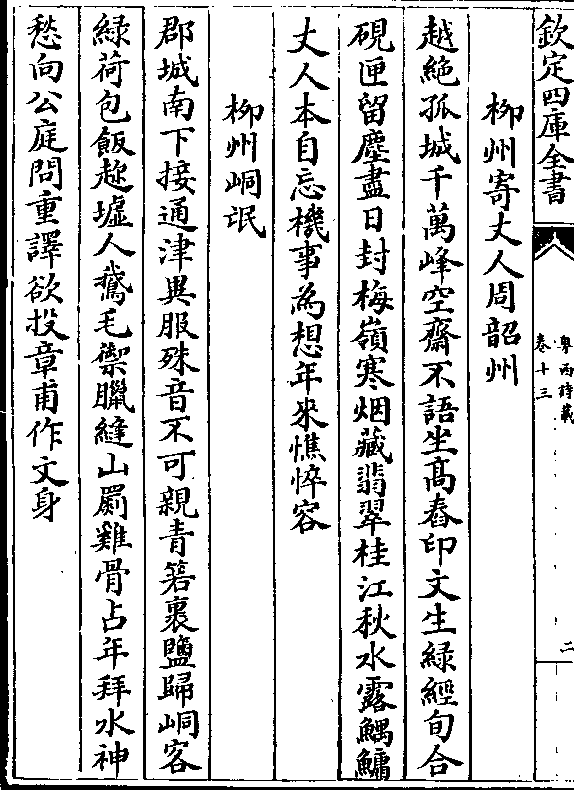 欽定四庫全書
粵西詩載
卷十三
二
柳州寄丈人周韶州
越絶孤城千萬峰空齋不語坐髙舂印文生緑經旬合
硯匣留塵盡日封梅嶺寒烟藏翡翠桂江秋水露鰅鱅
丈人本自忘機事為想年來憔悴容
柳州峒氓
郡城南下接通津異服殊音不可親青箬裹鹽歸峒客
緑荷包飯趂墟人鵞毛禦臘縫山罽雞骨占年拜水神
愁向公庭問重譯欲投章甫作文身